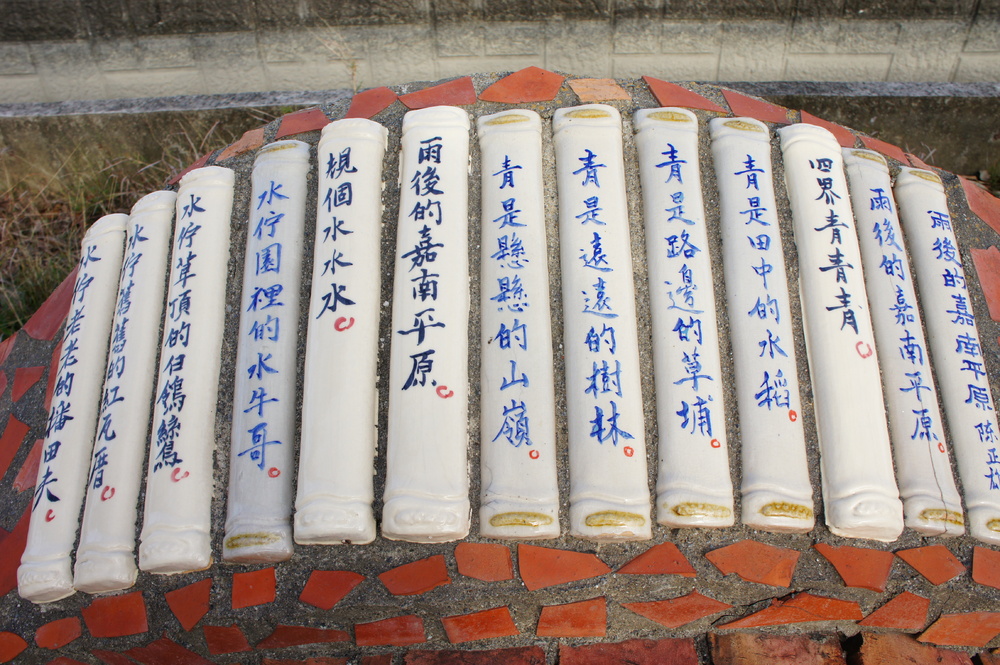 雨後的嘉南平原 陳正雄
雨後的嘉南平原
四界青青青
青是田中的水稻
青是路邊的草埔
青是遠遠的樹林
青是懸懸的山嶺
雨後的嘉南平原
規個水水水
水佇園裡的水牛哥
水佇草頂的白鴒鷥
水佇舊舊的紅瓦厝
水佇老老的播田夫